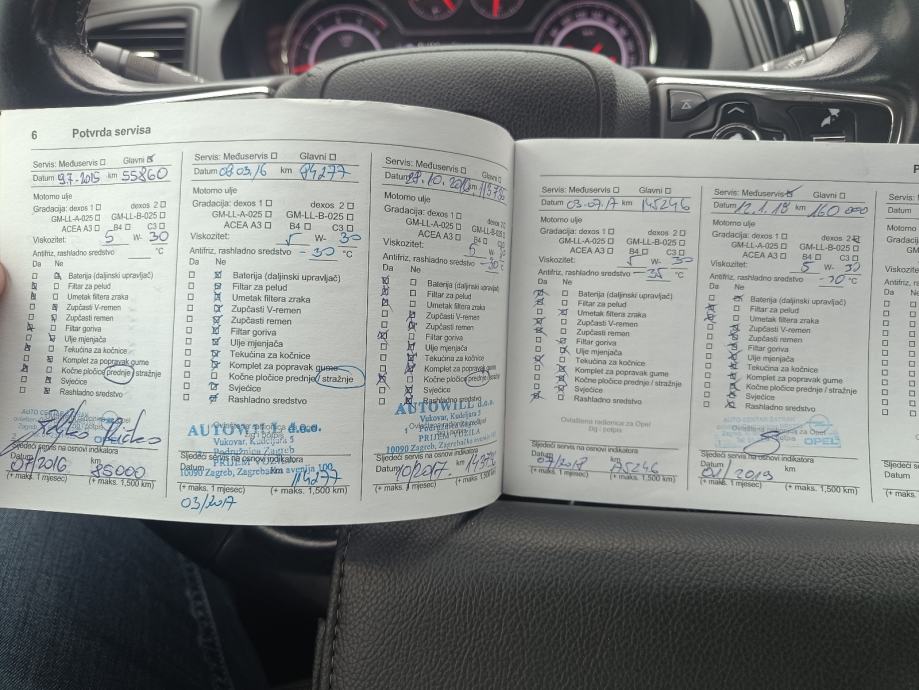 6 Potvrda servisa
Servis: Međuservis Glavni
Datum 9.7.2015 km 55860
Motorno ulje
Gradacija: dexos 1 dexos 2
GM-LL-A-025 GM-LL-B-025
ACEA A3 B4 C3
Viskozitet: 5 W- 30
Antifriz, rashladno sredstvo °C
Da Ne
Baterija (daljinski upravljač)
Filtar za pelud
Umetak filtera zraka
Zupčasti V-remen
Zupčasti remen
Filtar goriva
Ulje mjenjača
Tekućina za kočnice
Komplet za popravak gume
Kočne pločice prednje / stražnje
Svjećice
Rashladno sredstvo
Sljedeći servis na osnovi indikatora
Datum km
07/2016 85000
(+ maks. 1 mjesec) (+ maks. 1,500 km)
Servis: Međuservis Glavni
Datum km 84277
Motorno ulje
Gradacija: dexos 1 dexos 2
GM-LL-A-025 GM-LL-B-025
ACEA A3 B4 C3
Viskozitet: 5 W- 30
Antifriz, rashladno sredstvo -30 °C
Da Ne
Baterija (daljinski upravljač)
Filtar za pelud
Umetak filtera zraka
Zupčasti V-remen
Zupčasti remen
Filtar goriva
Ulje mjenjača
Tekućina za kočnice
Komplet za popravak gume
Kočne pločice prednje / stražnje
Svjećice
Rashladno sredstvo
AUTOWILL d.o.o.
Vukovar, Kudeljara 5
Podružnica Zagreb
PRIJEM VOZILA
10090 Zagreb, Zagrebačka avenija 100
Sljedeći servis na osnovi indikatora
Datum km
(+ maks. 1 mjesec) (+ maks. 1,500 km)
03/2017
Servis: Međuservis Glavni
Datum km
Motorno ulje
Gradacija: dexos 1 dexos 2
GM-LL-A-025 GM-LL-B-025
ACEA A3 B4
Viskozitet: 5 W-
Antifriz, rashladno sredstvo -30 °C
Da Ne
Baterija (daljinski upravljač)
Filtar za pelud
Umetak filtera zraka
Zupčasti V-remen
Zupčasti remen
Filtar goriva
Ulje mjenjača
Tekućina za kočnice
Komplet za popravak gume
Kočne pločice prednje
Svjećice
Rashladno sredstvo
AUTOWILL d.o.o.
Vukovar, Kudeljara 5
Podružnica Zagreb
PRIJEM VOZILA
10090 Zagreb, Zagrebačka avenija
Sljedeći servis na osnovi indikatora
Datum km
10/2017
(+ maks. 1 mjesec) (+ maks. 1,500 km)
Servis: Međuservis Glavni
Datum 03-07.17 km 145246
Motorno ulje
Gradacija: dexos 1 dexos 2
GM-LL-A-025 GM-LL-B-025
ACEA A3 B4 C3
Viskozitet: 5 W- 30
Antifriz, rashladno sredstvo -35 °C
Da Ne
Baterija (daljinski upravljač)
Filtar za pelud
Umetak filtera zraka
Zupčasti V-remen
Zupčasti remen
Filtar goriva
Ulje mjenjača
Tekućina za kočnice
Komplet za popravak gume
Kočne pločice prednje / stražnje
Svjećice
Rashladno sredstvo
Ovlaštena radionica za Opel
žig / potpis
Sljedeći servis na osnovi indikatora
Datum km
07/2018
(+ maks. 1 mjesec) (+ maks. 1,500 km)
Servis: Međuservis Glavni
Datum 12.1.18 km 160 000
Motorno ulje
Gradacija: dexos 1 dexos 2
GM-LL-A-025 GM-LL-B-025
ACEA A3 B4 C3
Viskozitet: 5 W- 30
Antifriz, rashladno sredstvo °C
Da Ne
Baterija (daljinski upravljač)
Filtar za pelud
Umetak filtera zraka
Zupčasti V-remen
Zupčasti remen
Filtar goriva
Ulje mjenjača
Tekućina za kočnice
Komplet za popravak gume
Kočne pločice prednje / stražnje
Svjećice
Rashladno sredstvo
OPEL
Sljedeći servis na osnovi indikatora
Datum km
01/2019
(+ maks. 1 mjesec) (+ maks. 1,500 km)